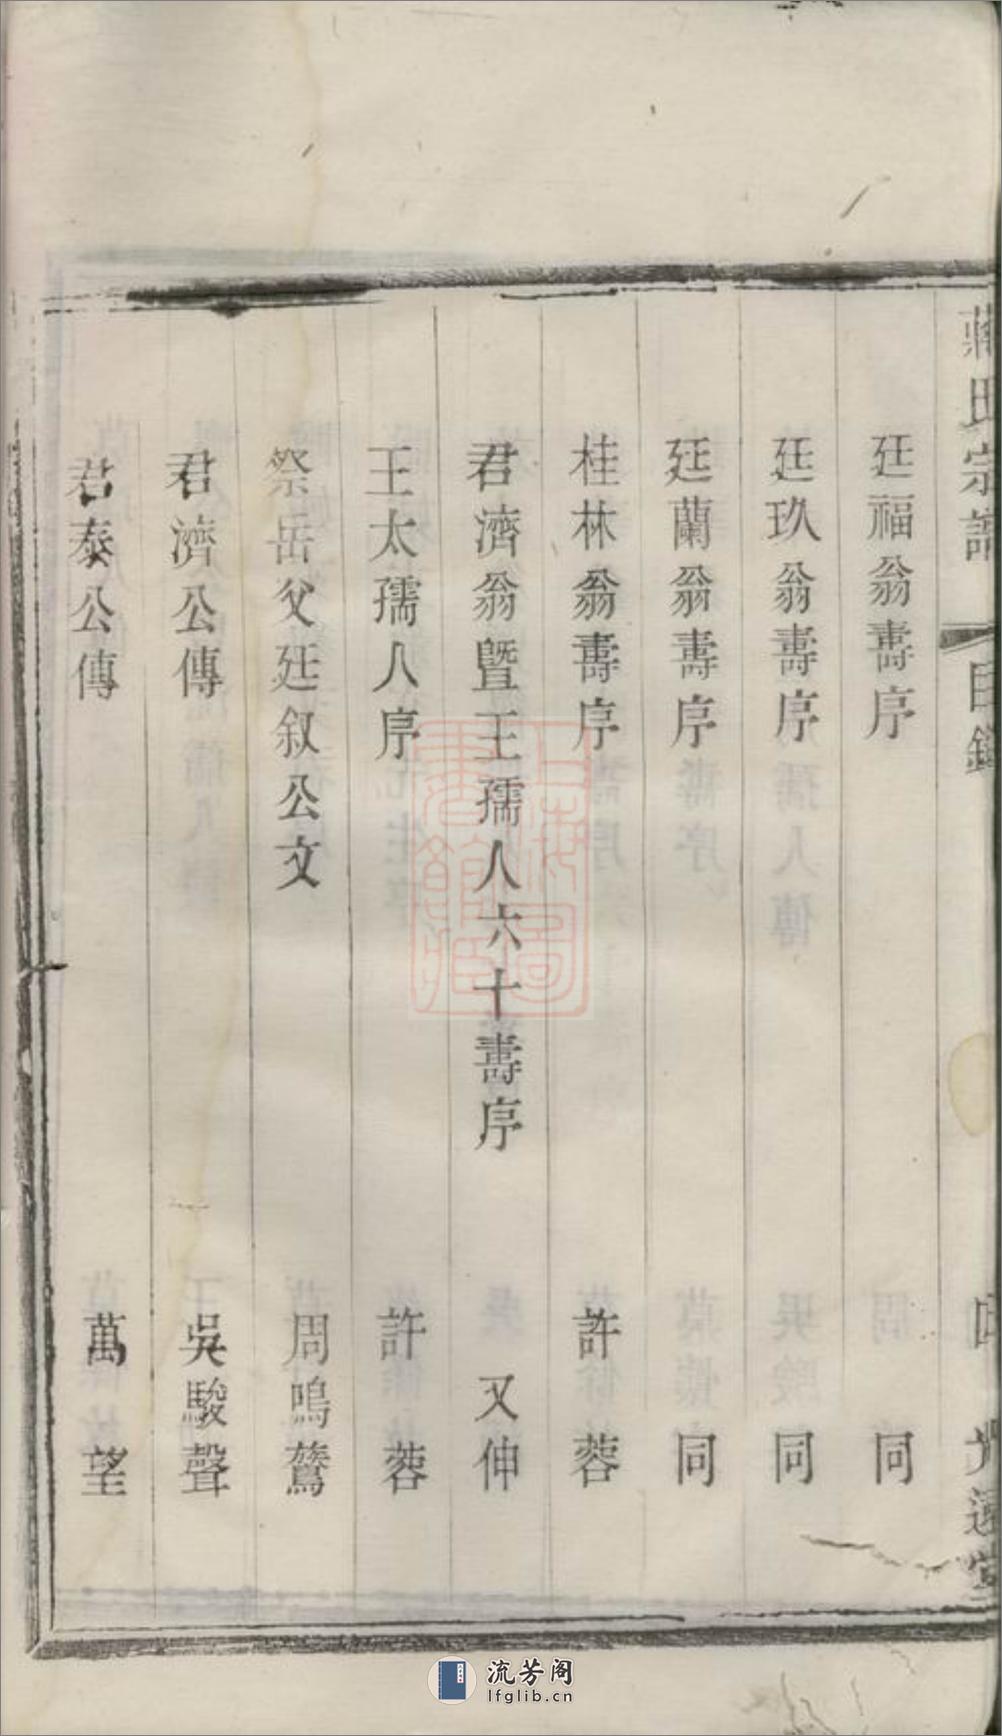 蔣氏宗譜 目錄 四 光遠堂
廷福翁壽序 同
廷玖翁壽序 同
廷蘭翁壽序 同
桂林翁壽序 許蓉
君濟翁暨王孺人六十壽序 又伸
王太孺人序 許蓉
祭岳父廷叙公文 周鳴鶩
君濟公傳 吳駿聲
君泰公傳 萬望
上海圖書館藏
流芳阁
lfglib.cn